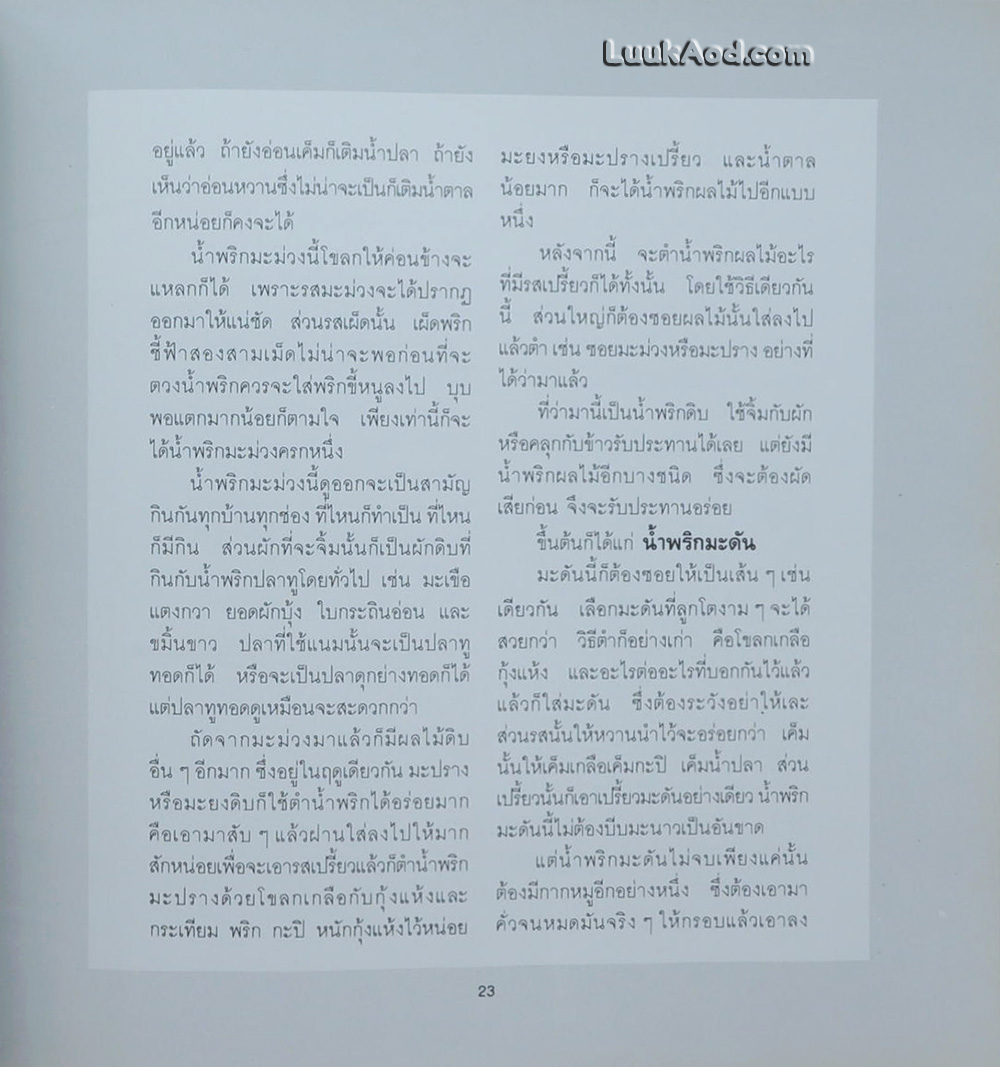 LuukAod.com
อยู่แล้ว ถ้ายังอ่อนเค็มก็เติมน้ำปลา ถ้ายัง
เห็นว่าอ่อนหวานซึ่งไม่น่าจะเป็นก็เติมน้ำตาล
อีกหน่อยก็คงจะได้
น้ำพริกมะม่วงนี้โขลกให้ค่อนข้างจะ
แหลกก็ได้ เพราะรสมะม่วงจะได้ปรากฏ
ออกมาให้แน่ชัด ส่วนรสเผ็ดนั้น เผ็ดพริก
ชี้ฟ้าสองสามเม็ดไม่น่าจะพอก่อนที่จะ
ตวงน้ำพริกควรจะใส่พริกขี้หนูลงไป บุบ
พอแตกมากน้อยก็ตามใจ เพียงเท่านี้ก็จะ
ได้น้ำพริกมะม่วงครกหนึ่ง
น้ำพริกมะม่วงนี้ดูออกจะเป็นสามัญ
กินกันทุกบ้านทุกช่อง ที่ไหนก็ทำเป็น ที่ไหน
ก็มีกิน ส่วนผักที่จะจิ้มนั้นก็เป็นผักดิบที่
กินกับน้ำพริกปลาทูโดยทั่วไป เช่น มะเขือ
แตงกวา ยอดผักบุ้ง ใบกระถินอ่อน และ
ขมิ้นขาว ปลาที่ใช้แนมนั้นจะเป็นปลาทู
ทอดก็ได้ หรือจะเป็นปลาดุกย่างทอดก็ได้
แต่ปลาทูทอดดูเหมือนจะสะดวกกว่า
ถัดจากมะม่วงมาแล้วก็มีผลไม้ดิบ
อื่น ๆ อีกมาก ซึ่งอยู่ในฤดูเดียวกัน มะปราง
หรือมะยงดิบก็ใช้ตำน้ำพริกได้อร่อยมาก
คือเอามาสับ ๆ แล้วฝานใส่ลงไปให้มาก
สักหน่อยเพื่อจะเอารสเปรี้ยวแล้วก็ตำน้ำพริก
มะปรางด้วยโขลกเกลือกับกุ้งแห้งและ
กระเทียม พริก กะปิ หนักกุ้งแห้งไว้หน่อย
มะยงหรือมะปรางเปรี้ยว และน้ำตาล
น้อยมาก ก็จะได้น้ำพริกผลไม้ไปอีกแบบ
หนึ่ง
หลังจากนี้ จะตำน้ำพริกผลไม้อะไร
ที่มีรสเปรี้ยวก็ได้ทั้งนั้น โดยใช้วิธีเดียวกัน
นี้ ส่วนใหญ่ก็ต้องซอยผลไม้นั้นใส่ลงไป
แล้วตำ เช่น ซอยมะม่วงหรือมะปราง อย่างที่
ได้ว่ามาแล้ว
ที่ว่ามานี้เป็นน้ำพริกดิบ ใช้จิ้มกับผัก
หรือคลุกกับข้าวรับประทานได้เลย แต่ยังมี
น้ำพริกผลไม้อีกบางชนิด ซึ่งจะต้องผัด
เสียก่อน จึงจะรับประทานอร่อย
ขึ้นต้นก็ได้แก่ น้ำพริกมะดัน
มะดันนี้ก็ต้องซอยให้เป็นเส้น ๆ เช่น
เดียวกัน เลือกมะดันที่ลูกโตงาม ๆ จะได้
สวยกว่า วิธีตำก็อย่างเก่า คือโขลกเกลือ
กุ้งแห้ง และอะไรต่ออะไรที่บอกกันไว้แล้ว
แล้วก็ใส่มะดัน ซึ่งต้องระวังอย่าให้เละ
ส่วนรสนั้นให้หวานนำไว้จะอร่อยกว่า เค็ม
นั้นให้เค็มเกลือเค็มกะปิ เค็มน้ำปลา ส่วน
เปรี้ยวนั้นก็เอาเปรี้ยวมะดันอย่างเดียว น้ำพริก
มะดันนี้ไม่ต้องบีบมะนาวเป็นอันขาด
แต่น้ำพริกมะดันไม่จบเพียงแค่นั้น
ต้องมีกากหมูอีกอย่างหนึ่ง ซึ่งต้องเอามา
คั่วจนหมดมันจริง ๆ ให้กรอบแล้วเอาลง
23